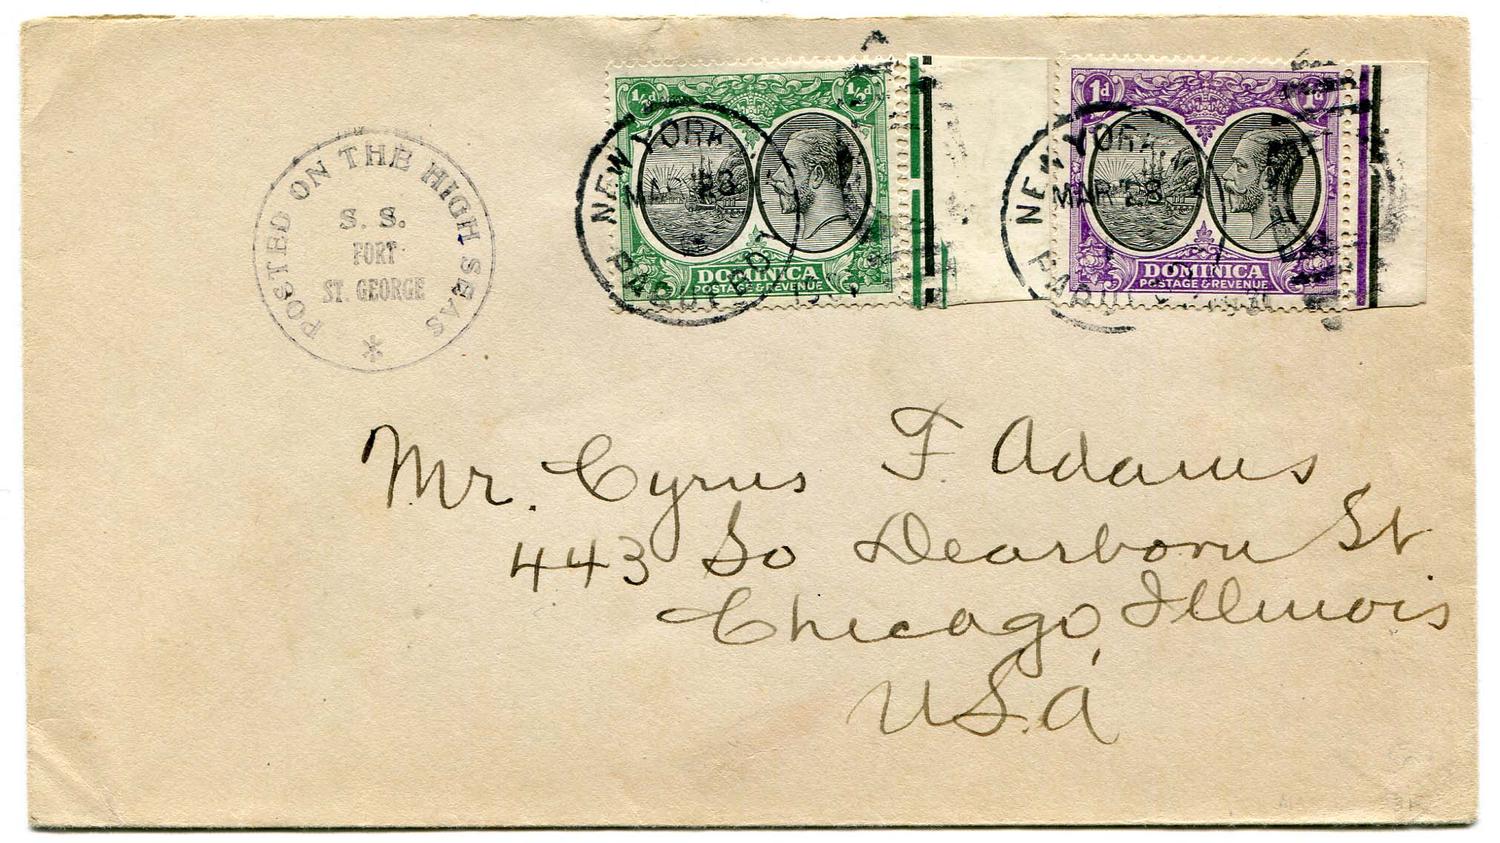 POSTED ON THE HIGH SEAS
S. S.
FORT
ST. GEORGE
½d ½d
DOMINICA
POSTAGE & REVENUE
NEW YORK
MAR 28
1d 1d
DOMINICA
POSTAGE & REVENUE
NEW YORK
MAR 28
Mr. Cyrus F. Adams
443 So Dearborn St.
Chicago, Illinois
U.S.A